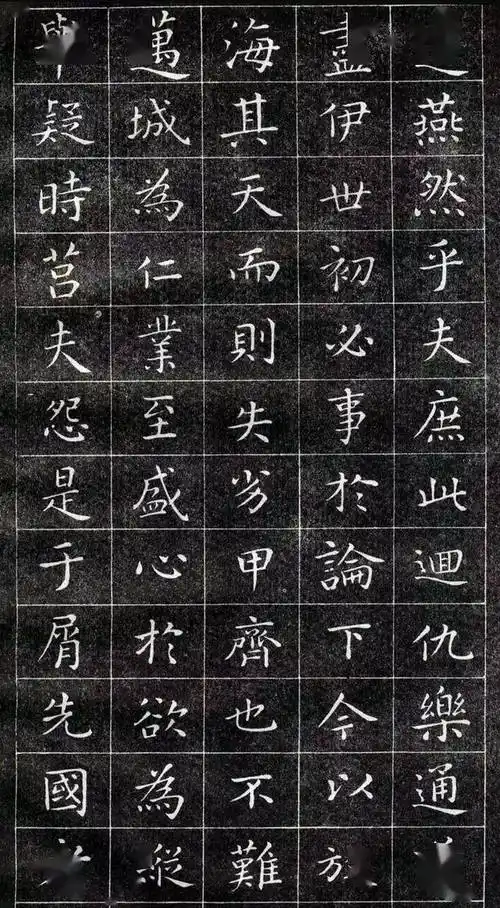 燕然乎夫庶此迴仇樂通
伊世初必事於論下今以
海其天而則失劣甲齊也不難
邁城為仁業至盛心於欲為縱
疑時莒夫怨是于屑先國